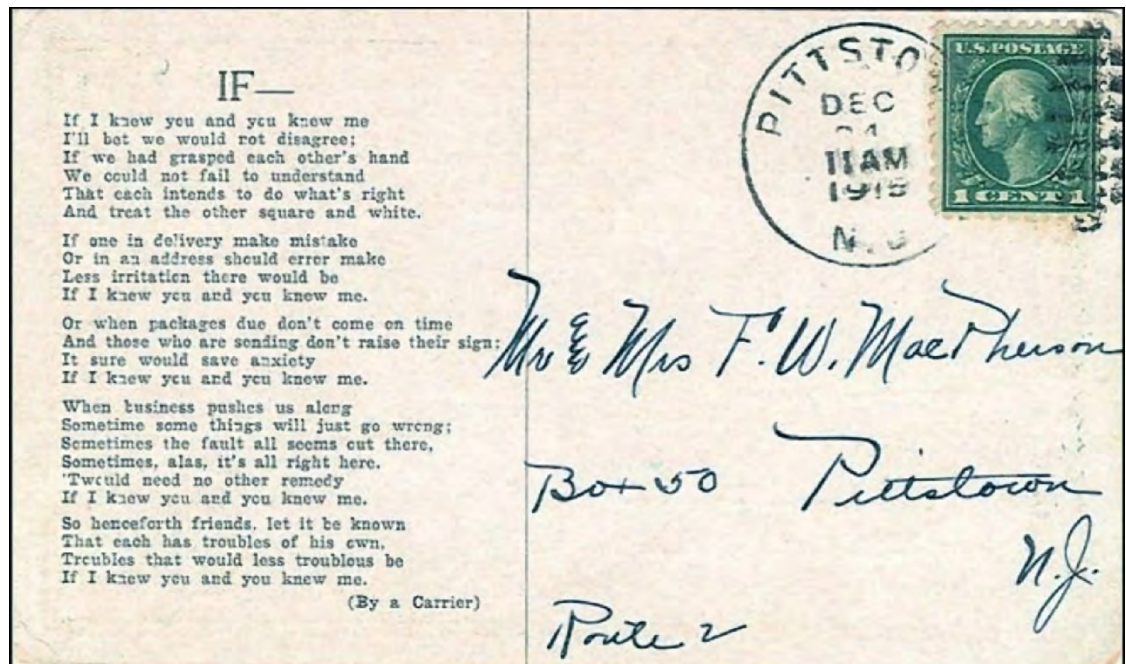 IF—
If I knew you and you knew me
I'll bet we would not disagree;
If we had grasped each other's hand
We could not fail to understand
That each intends to do what's right
And treat the other square and white.
If one in delivery make mistake
Or in an address should error make
Less irritation there would be
If I knew you and you knew me.
Or when packages due don't come on time
And those who are sending don't raise their sign;
It sure would save anxiety
If I knew you and you knew me.
When business pushes us along
Sometime some things will just go wrong;
Sometimes the fault all seems out there,
Sometimes, alas, it's all right here.
'Twould need no other remedy
If I knew you and you knew me.
So henceforth friends, let it be known
That each has troubles of his own,
Troubles that would less troublous be
If I knew you and you knew me.
(By a Carrier)
PITTSTO
DEC
11 AM
1919
N.J
U.S. POSTAGE
1 CENT 1
Mr & Mrs F. W. MacPherson
Box 50 Pittstown
N.J.
Route 2